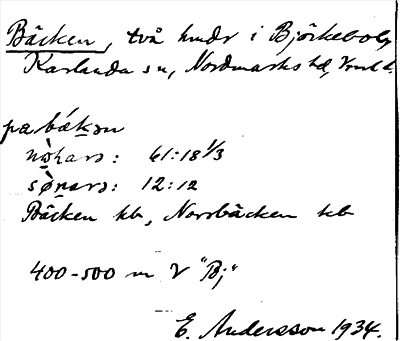 Bäcken, två hmdr i Björkebol,
Karlanda sn, Nordmarks hd, Vrml l.
pa bákən
nò̱ꝛarə: 61:18 1/3
sø̀ṉarə: 12:12
Bäcken kb, Norrbäcken kb
400-500 m V "Bj"
E. Andersson 1934.